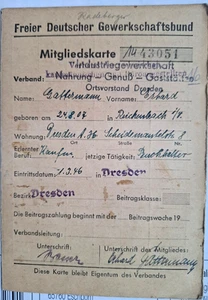 Freier Deutscher Gewerkschaftsbund
Mitgliedskarte № 43051
Industriegewerkschaft
Verband: Nahrung - Genuß - Gaststätten
Ortsvorstand Dresden
Name: Gattermann Vorname: Erhard
geboren am 24.8.07 in Reichenbach i/V.
Wohnung Dresden A.36
Ort Straße Nr.
Erlernter Kaufm. jetzige Tätigkeit Buchhalter
Eintrittsdatum 1.3.46 in Dresden
Bezirk Dresden Beitragsklasse:
Die Beitragszahlung beginnt mit der Beitragswoche 19
Verbandsleitung:
Unterschrift: Unterschrift des Mitgliedes:
Erhard Gattermann
Diese Karte bleibt Eigentum des Verbandes